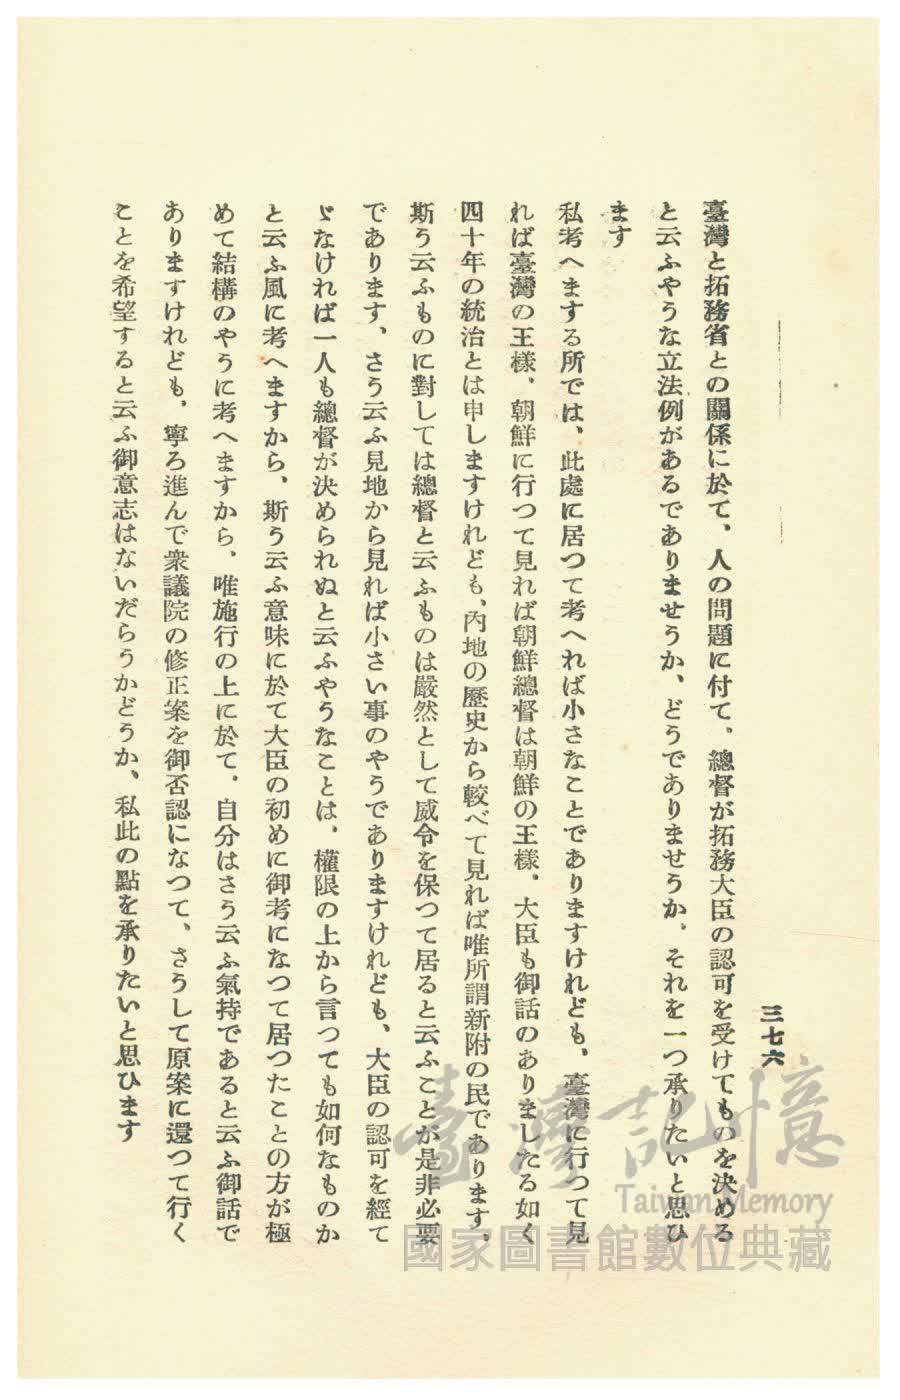 三七六
臺灣と拓務省との關係に於て、人の問題に付て、總督が拓務大臣の認可を受けてものを決める
と云ふやうな立法例があるでありませうか、どうでありませうか、それを一つ承りたいと思ひ
ます
私考へまする所では、此處に居つて考へれば小さなことでありますけれども、臺灣に行つて見
れば臺灣の王樣、朝鮮に行つて見れば朝鮮總督は朝鮮の王樣、大臣も御話のありましたる如く
四十年の統治とは申しますけれども、內地の歷史から較べて見れば唯所謂新附の民であります、
斯う云ふものに對しては總督と云ふものは嚴然として威令を保つて居ると云ふことが是非必要
であります、さう云ふ見地から見れば小さい事のやうでありますけれども、大臣の認可を經て
ゞなければ一人も總督が決められぬと云ふやうなことは、權限の上から言つても如何なものか
と云ふ風に考へますから、斯う云ふ意味に於て大臣の初めに御考になつて居つたことの方が極
めて結構のやうに考へますから、唯施行の上に於て、自分はさう云ふ氣持であると云ふ御話で
ありますけれども、寧ろ進んで衆議院の修正案を御否認になつて、さうして原案に還つて行く
ことを希望すると云ふ御意志はないだらうかどうか、私此の點を承りたいと思ひます
臺灣記憶
Taiwan Memory
國家圖書館數位典藏